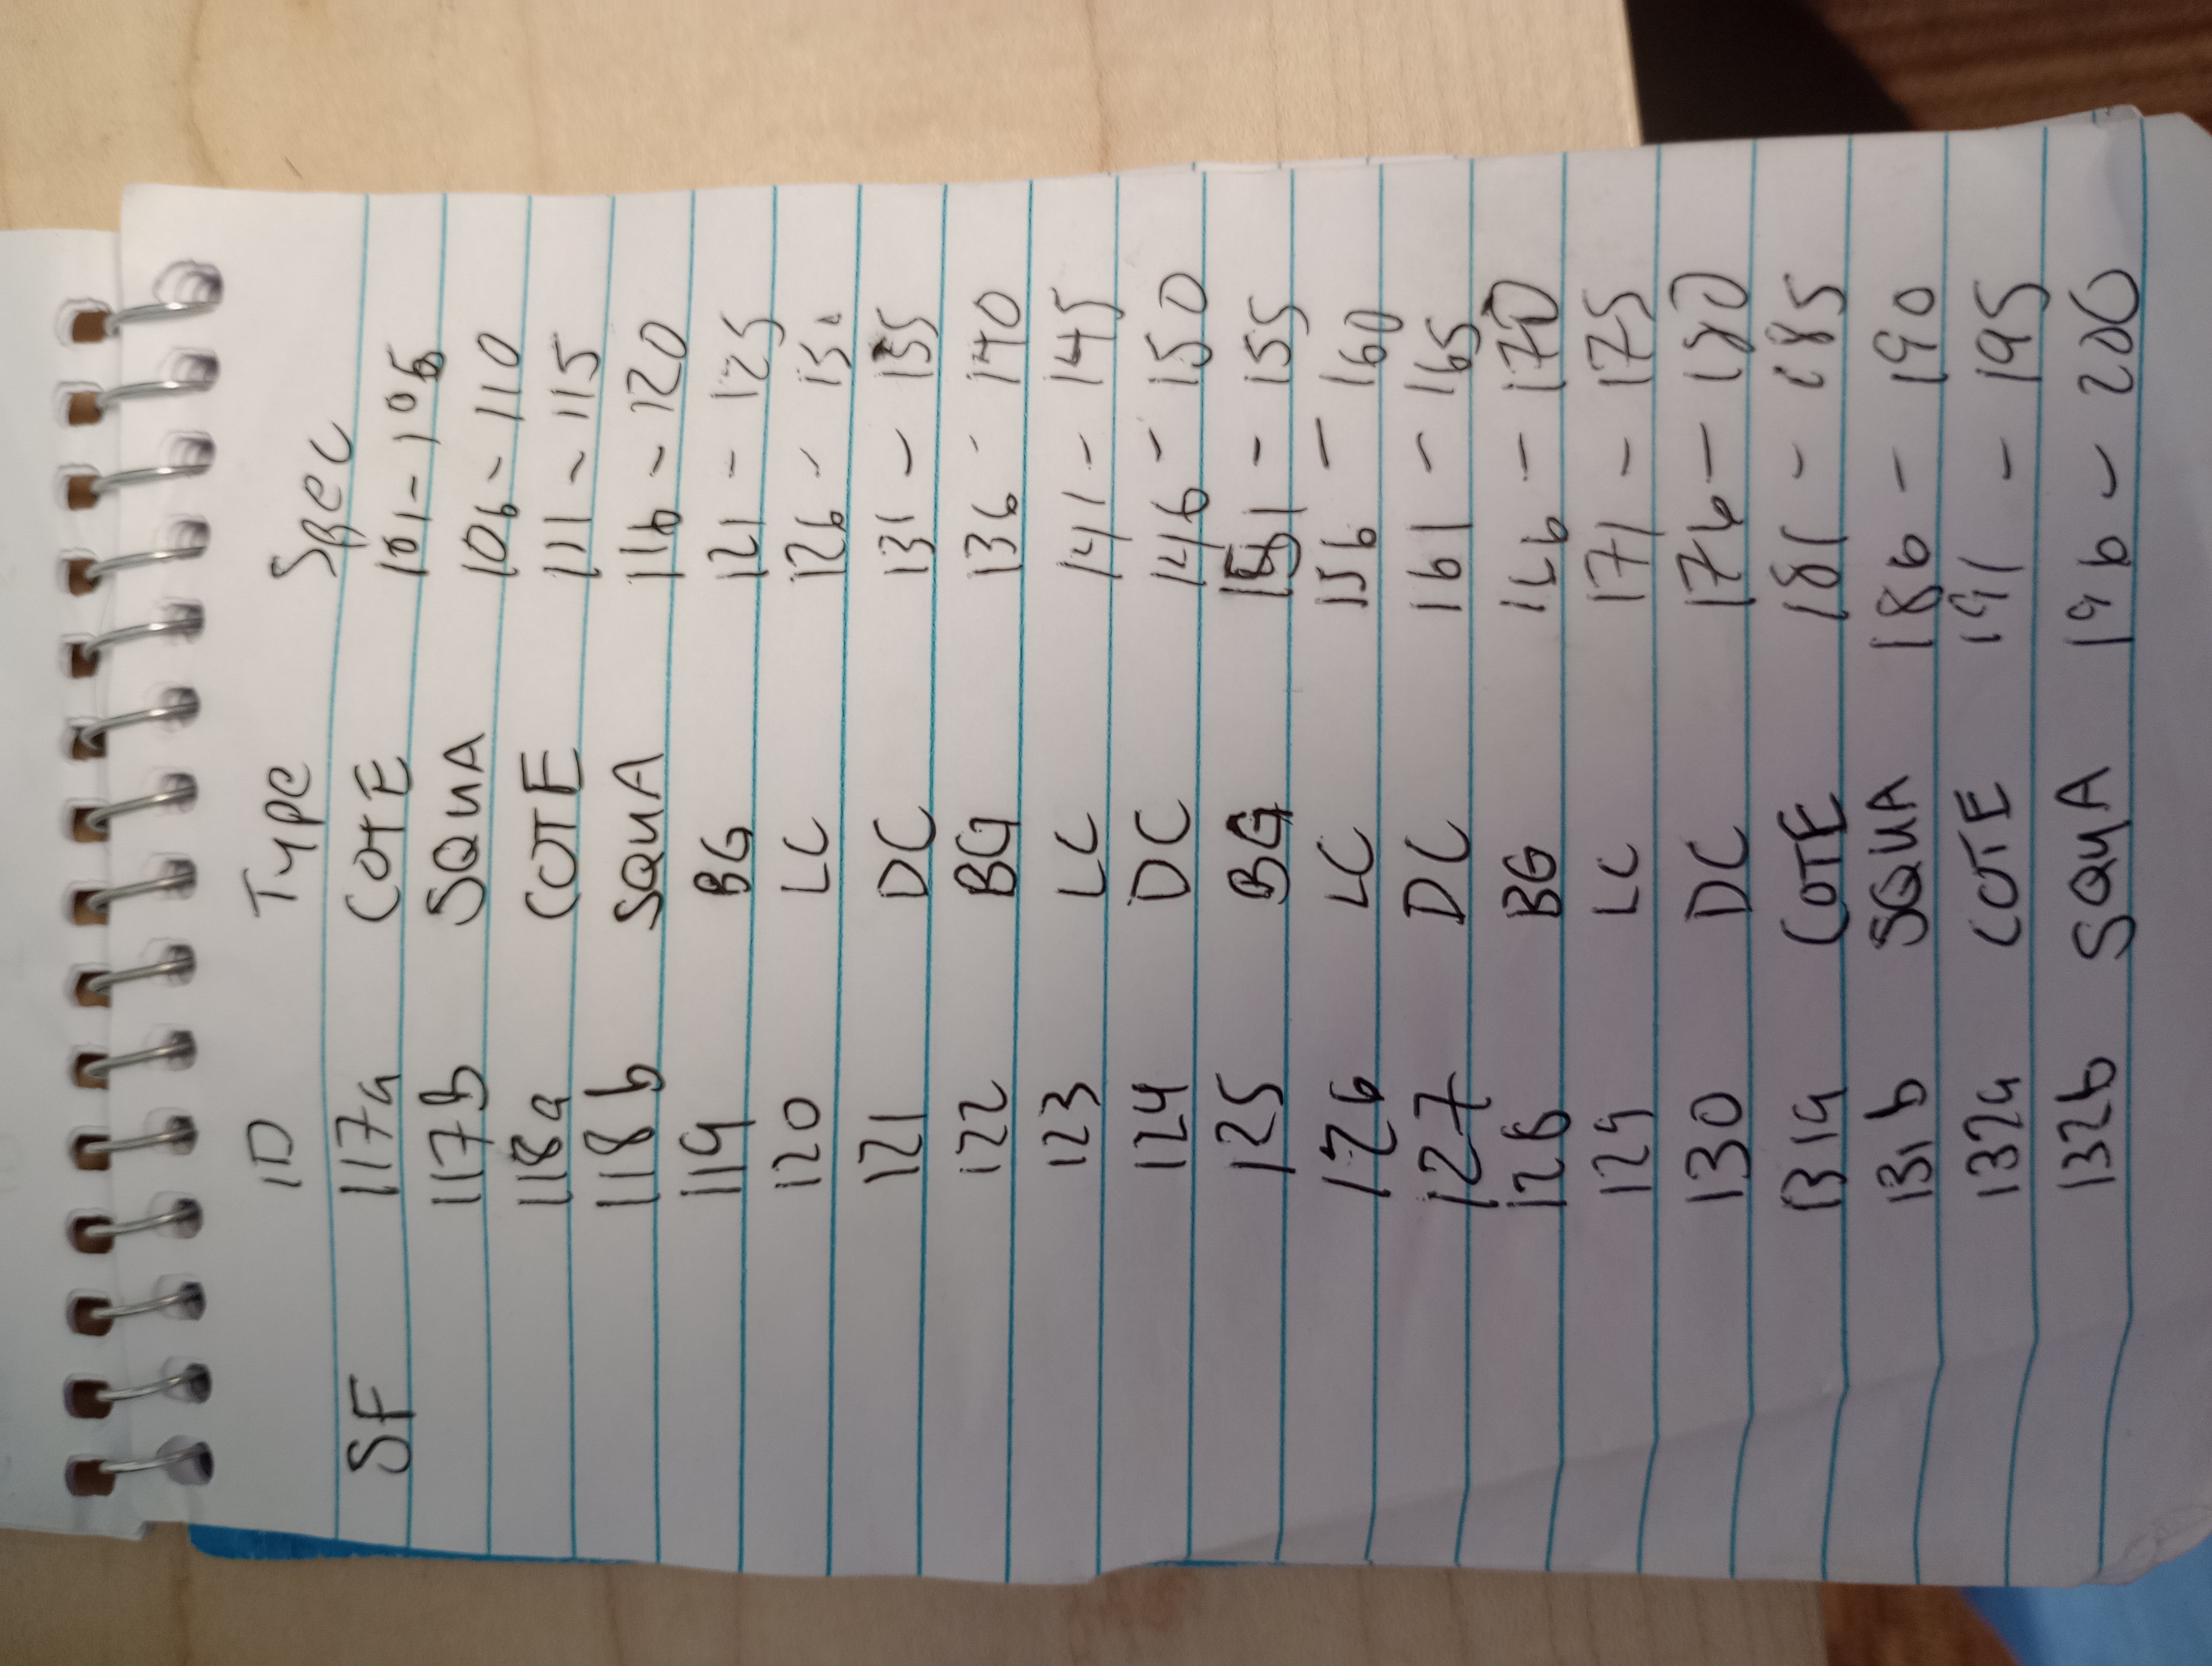 ID Type Spec
SF 117a COTE 101-105
117B SQUA 106-110
118a COTE 111-115
118b SQUA 116-120
119 BG 121-125
120 LC 126-130
121 DC 131-135
122 BG 136-140
123 LC 141-145
124 DC 146-150
125 BG 151-155
126 LC 156-160
127 DC 161-165
128 BG 166-170
129 LC 171-175
130 DC 176-180
131a COTE 181-185
131b SQUA 186-190
132a COTE 191-195
132b SQUA 196-200